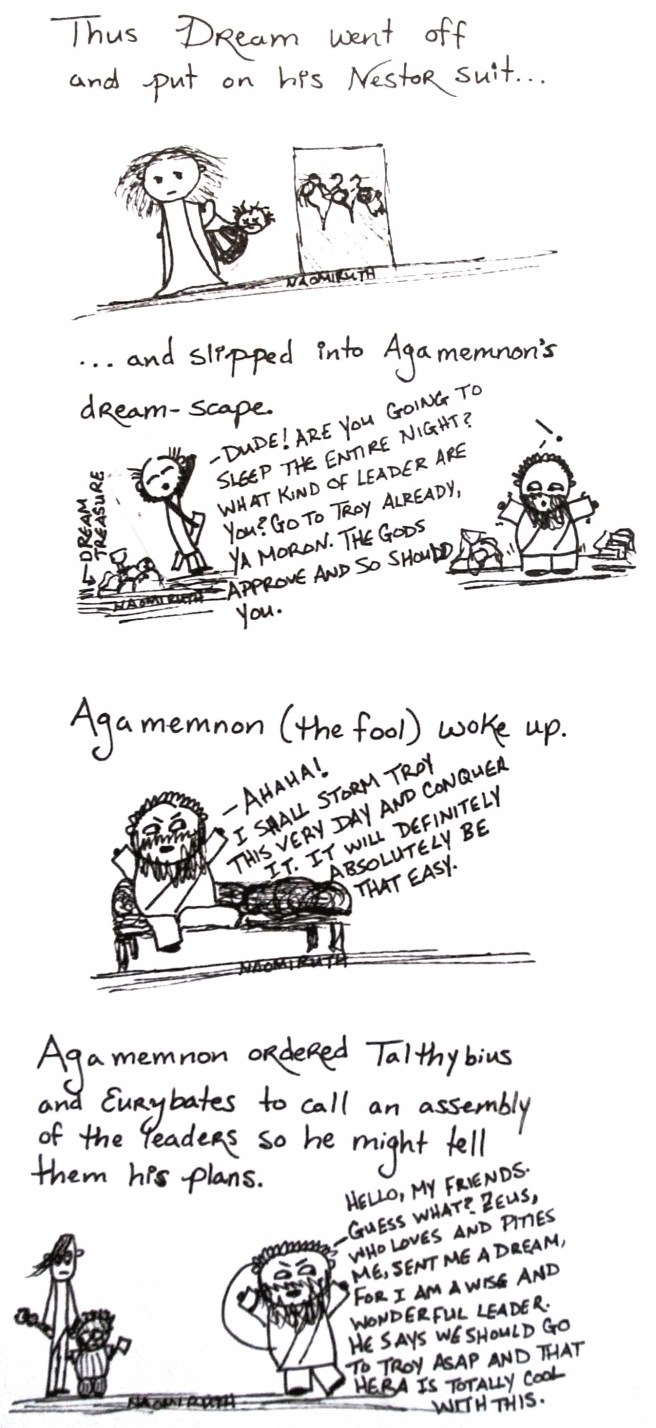 Thus Dream went off
and put on his Nestor suit...
NAOMIRUTH
... and slipped into Agamemnon's
dream-scape.
DREAM
TREASURE
- DUDE! ARE YOU GOING TO
SLEEP THE ENTIRE NIGHT?
WHAT KIND OF LEADER ARE
YOU? GO TO TROY ALREADY,
YA MORON. THE GODS
APPROVE AND SO SHOULD
YOU.
NAOMIRUTH
Agamemnon (the fool) woke up.
- AHAHA!
I SHALL STORM TROY
THIS VERY DAY AND CONQUER
IT. IT WILL DEFINITELY
ABSOLUTELY BE
THAT EASY.
NAOMIRUTH
Agamemnon ordered Talthybius
and Eurybates to call an assembly
of the leaders so he might tell
them his plans.
HELLO, MY FRIENDS.
GUESS WHAT? ZEUS,
WHO LOVES AND PITIES
ME, SENT ME A DREAM,
FOR I AM A WISE AND
WONDERFUL LEADER.
HE SAYS WE SHOULD GO
TO TROY ASAP AND THAT
HERA IS TOTALLY COOL
WITH THIS.
NAOMIRUTH